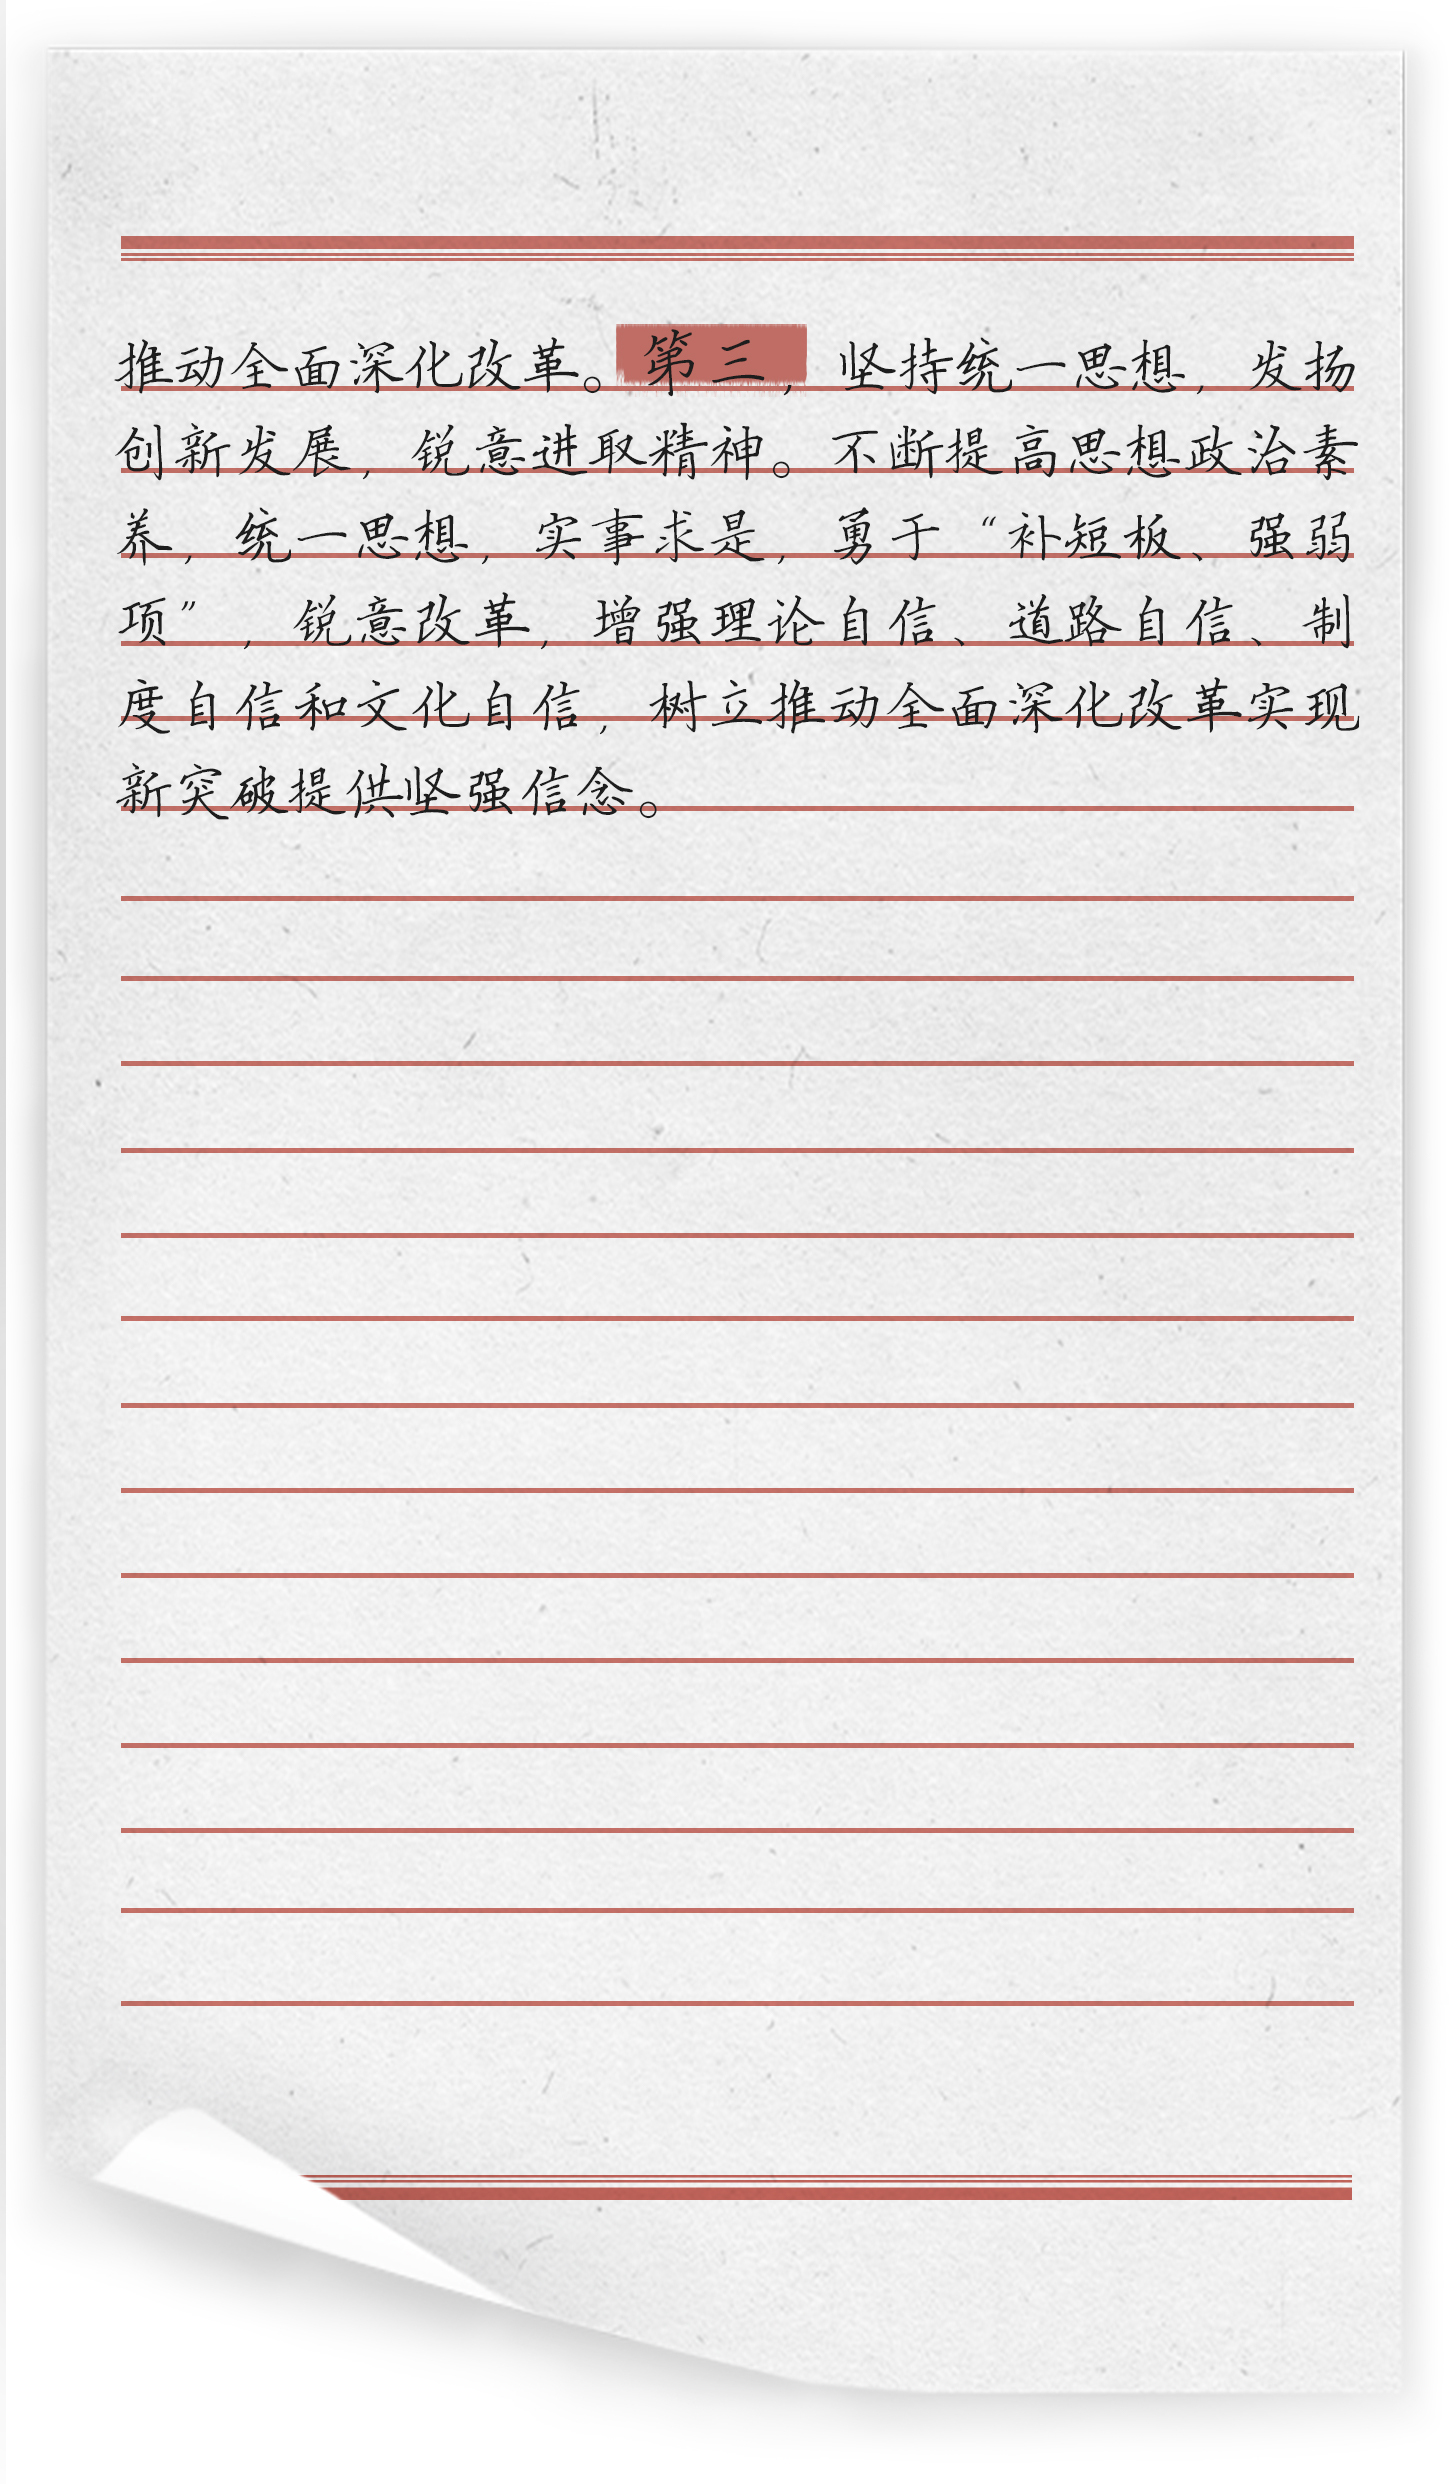 推动全面深化改革。第三，坚持统一思想，发扬
创新发展，锐意进取精神。不断提高思想政治素
养，统一思想，实事求是，勇于“补短板、强弱
项”，锐意改革，增强理论自信、道路自信、制
度自信和文化自信，树立推动全面深化改革实现
新突破提供坚强信念。